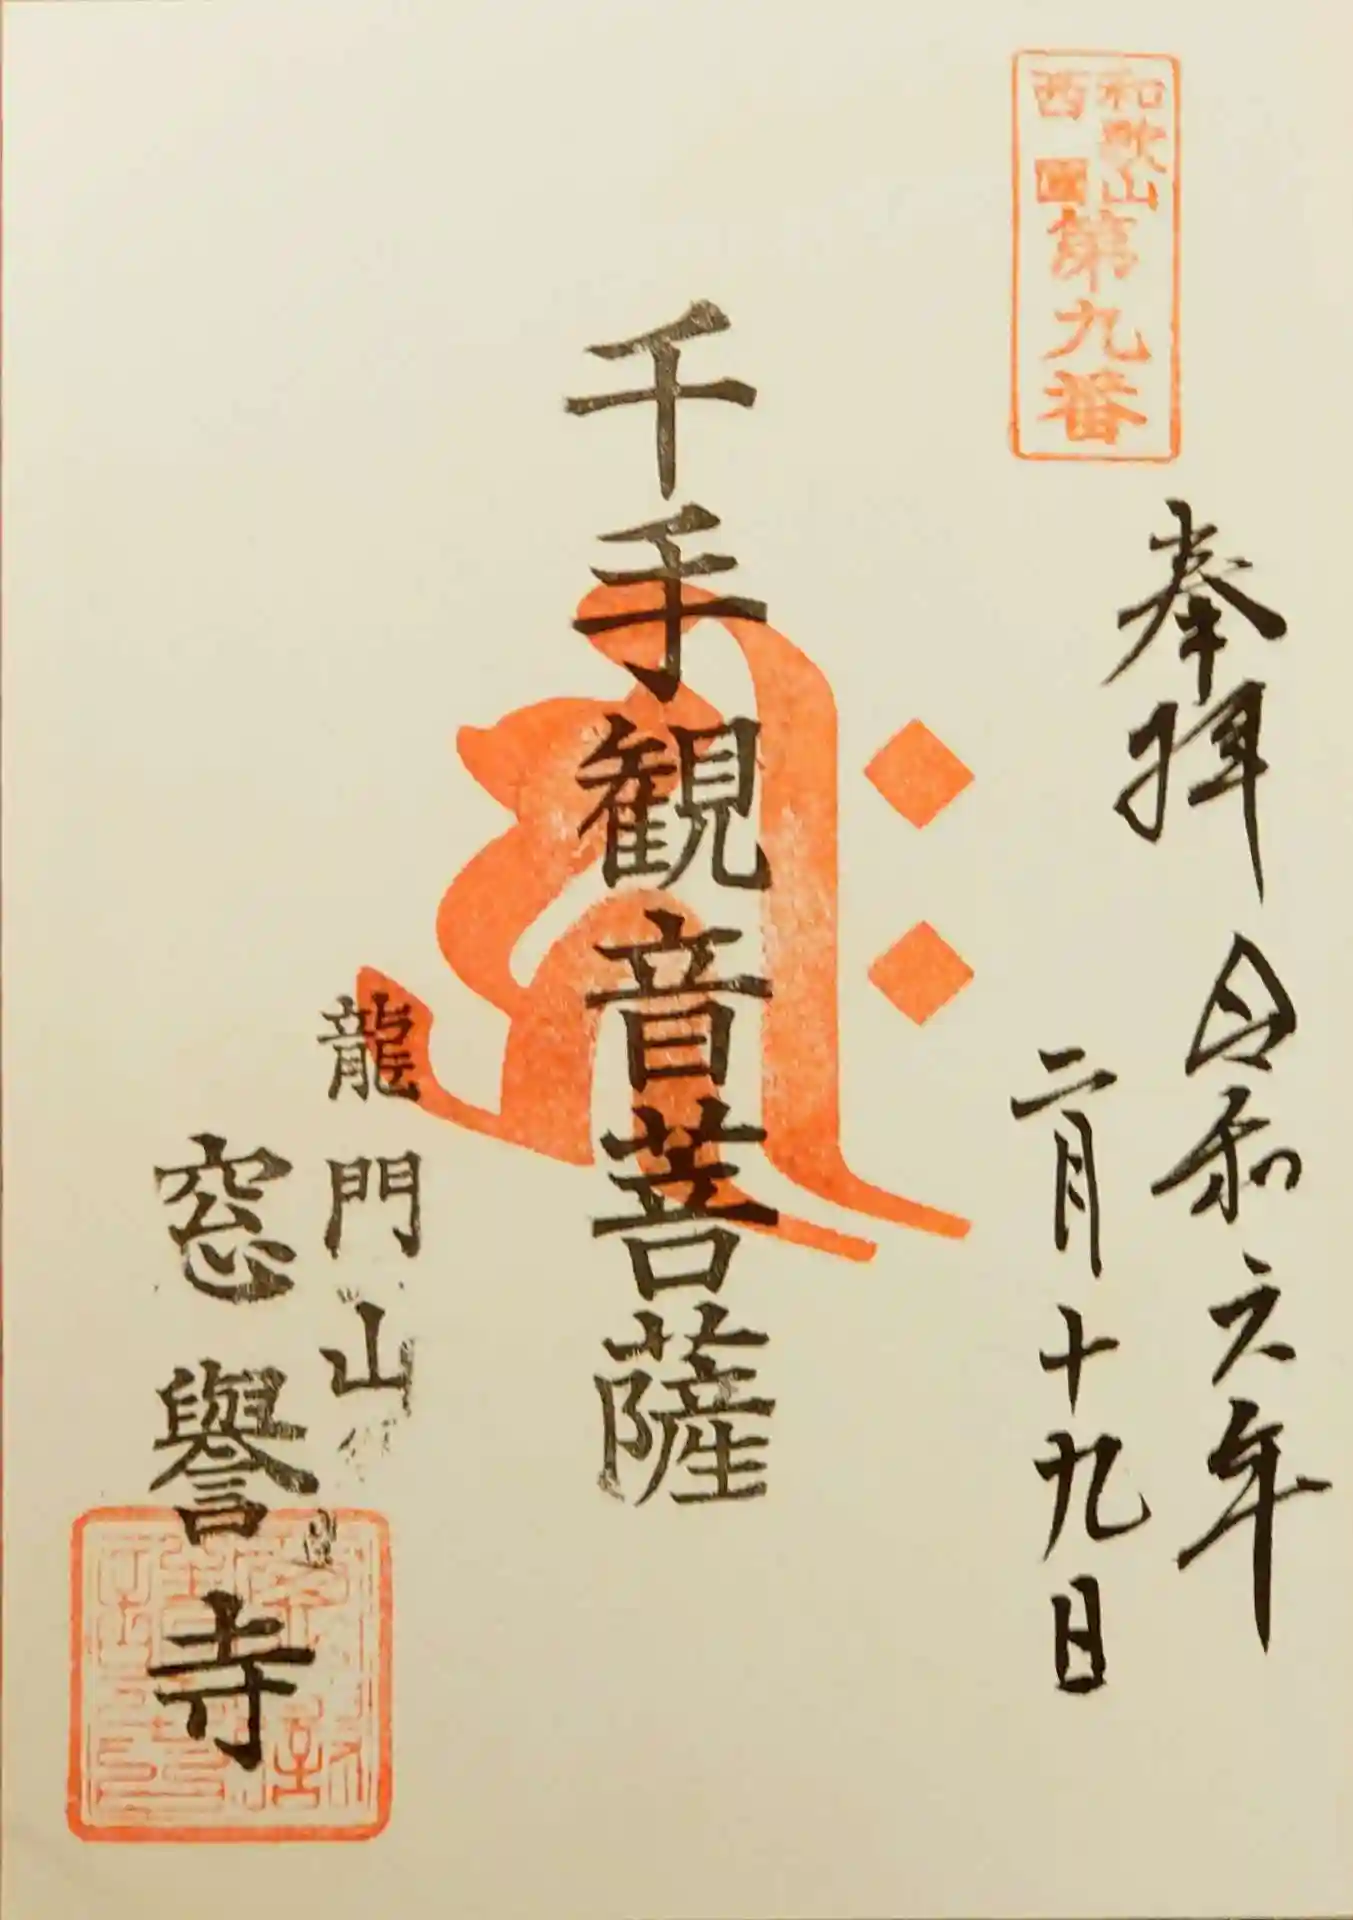 和歌山
西國
第九番
奉拝
令和六年
二月十九日
千手観音菩薩
龍門山
窓譽寺